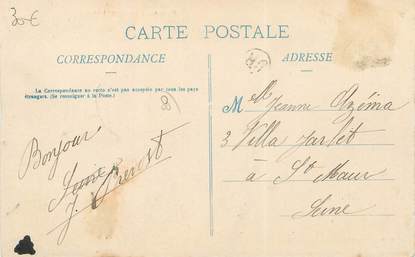 30€
CARTE POSTALE
CORRESPONDANCE
ADRESSE
La Correspondance au recto n'est pas acceptée par tous les pays
étrangers. (Se renseigner à la Poste.)
Mlle Jeanne Azéma
3 Villa
à St Maur
Seine
Bonjour
J. Prevost